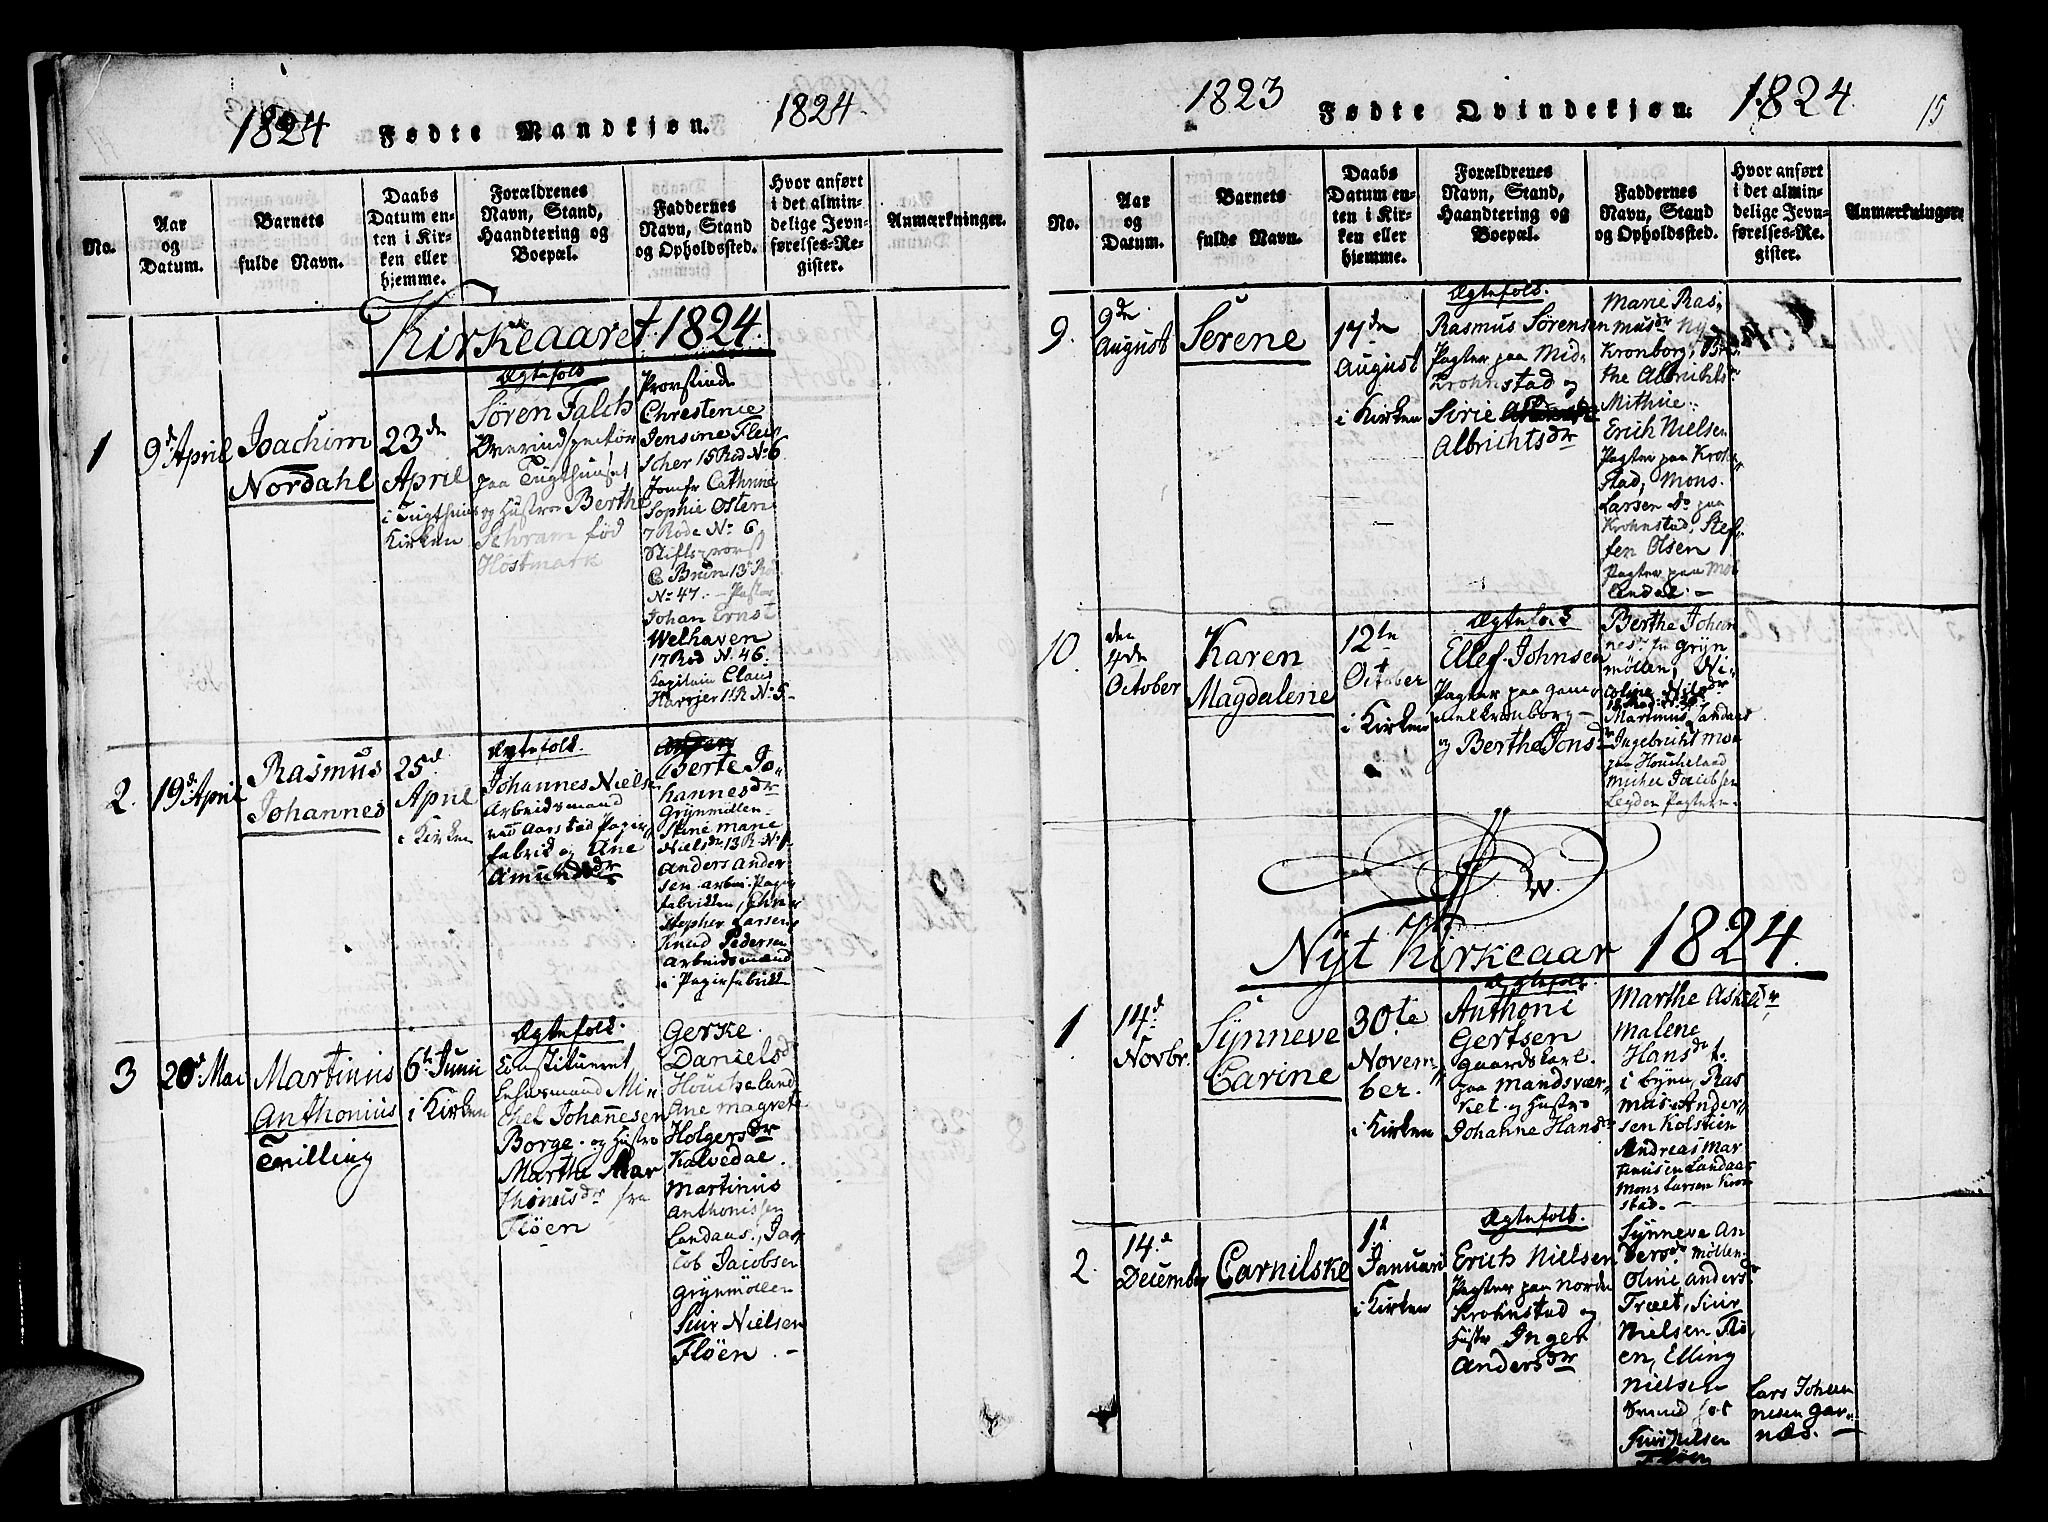 1824 Fødte Mandkjøn. 1824.
No.
Aar
og
Datum.
Barnets
fulde Navn.
Daabs
Datum en-
ten i Kir-
ken eller
hjemme.
Forældrenes
Navn, Stand,
Haandtering og
Boepæl.
Faddernes
Navn, Stand
og Opholdssted.
Hvor anført
i det almin-
delige Jevn-
førelses-Re-
gister.
Anmærkninger.
Kirkeaaret 1824.
1
9d April
Joachim
Nordahl
23de
April
i Tugthuus
Kirken
Ægtefolk
Søren Falch
Overinspecteur
paa Tugthuuset
og Hustroe Berthe
Schram fød
Hostmark
Provstinde
Chrestence
Jensine Fleis
scher 15 Rod No 6
Jomfr Cathrine
Sophie Osten
7 Rode No 6
Stiftsprovst
Brun 13 Rd
No 47. - Pastor
Johan Ernst
Welhaven
17 Rod N. 46.
Kapitain Claus
2.
19d April
Rasmus
Johannes
25d
April
i Kirken
Ægtefolk.
Johannes Niels
Arbeidsmand
ved Aarstad Papir
fabrik og Ane
Amundsdr
Berte Jo
hannesdr
Grynmøllen
Stine Marie
Nielsdr 13 R. No
Anders Ander
sen arbei. Papir
fabrikken,
stopher Larsen
Knud Pedersen
Arbeidsmænd
i Papirfabrikk
3
20d Mai
Martinus
Anthonius
Tvilling
6te Juni
i Kirken
Ægtefolk.
Constitueret
Lehnsmand Mi
chel Johannesen
Borge. og Hustro
Marthe Mar
thinusdr fra
Fløen
Gerke
Danielsdr
Houcheland
Ane Magrete
Holgersdr
Kalvedal.
Martinus
Anthonissen
Landaas., Ja
cob Jacobsen
Grynmøllen
Siur Nielsen
Fløen . -
1823 Fødte Qvindekjøn. 1824. 15
No.
Aar
og
Datum.
Barnets
fulde Navn.
Daabs
Datum en-
ten i Kir-
ken eller
hjemme.
Forældrenes
Navn, Stand,
Haandtering og
Boepæl.
Faddernes
Navn, Stand
og Opholdssted.
Hvor anført
i det almin-
delige Jevn-
førelses-Re-
gister.
Anmærkninger.
9.
9de
August
Serene
17de
August
i Kirken
Ægtefolk.
Rasmus Sørensen
Pagter paa Mid
Krohnstad og
Sirie
Albrichtsdr
Marie Ras
musdr Ny
Kronborg, Bir
the Albrichtsdr
Mithue.
Erich Nielsen
Pagter paa Kroh
stad, Mons
Larsen do paa
Krohnstad, Stef
fen Olsen
Pagter paa Møl
lendal. -
10.
den
4de
October
Karen
Magdalene
12te
October
i Kirken
Ægtefolk
Ellef Johnsen
Pagter paa Gam
melkronborg
og Berthe Jonsdr
Berthe Johan
nesdr fra Gryn
møllen, Ni
coline Nilsdr
Martinus Landaas
Ingebricht Mon
paa Houcheland
Michel Jacobsen
Legden Pagtere.
Nyt Kirkeaar 1824.
1
14d
Novbr.
Synneve
Carine
30te
Novem-
ber.
i Kirken
Ægtefolk
Anthoni
Gertsen
gaardskarl
paa Mandsvær
ket. og Hustro
Johanne Hansdr
Marthe Askeldr
Malene
Hansdr
i byen, Ras
mus Ander
sen Kolstien
Andreas Mar
tinusen Landaas
Mons Larsen Kron
stad. -
2.
14.d
December
Carnilske
1d
Januari
i Kirken
Ægtefolk.
Erich Nielsen
Pagter paa Norde
Krohnstad og
Hustr Inger
Andersdr
Synneve An
dersdr Møllen.
Olini Andersdr
Træet, Siur
Nielsen Flø
en, Elling
Nielsen
Siur Nilsen
Fløen
Lars Johan
nesen Gar
næs. -